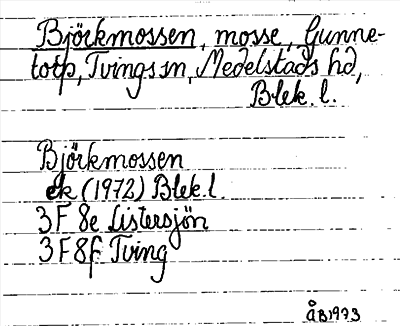 Björkmossen, mosse, Gunne-
torp, Tvings sn, Medelstads hd,
Blek. l.
Björkmossen
ek (1972) Blek. l.
3F 8e Listersjön
3F 8f Tving
ÅB 1973